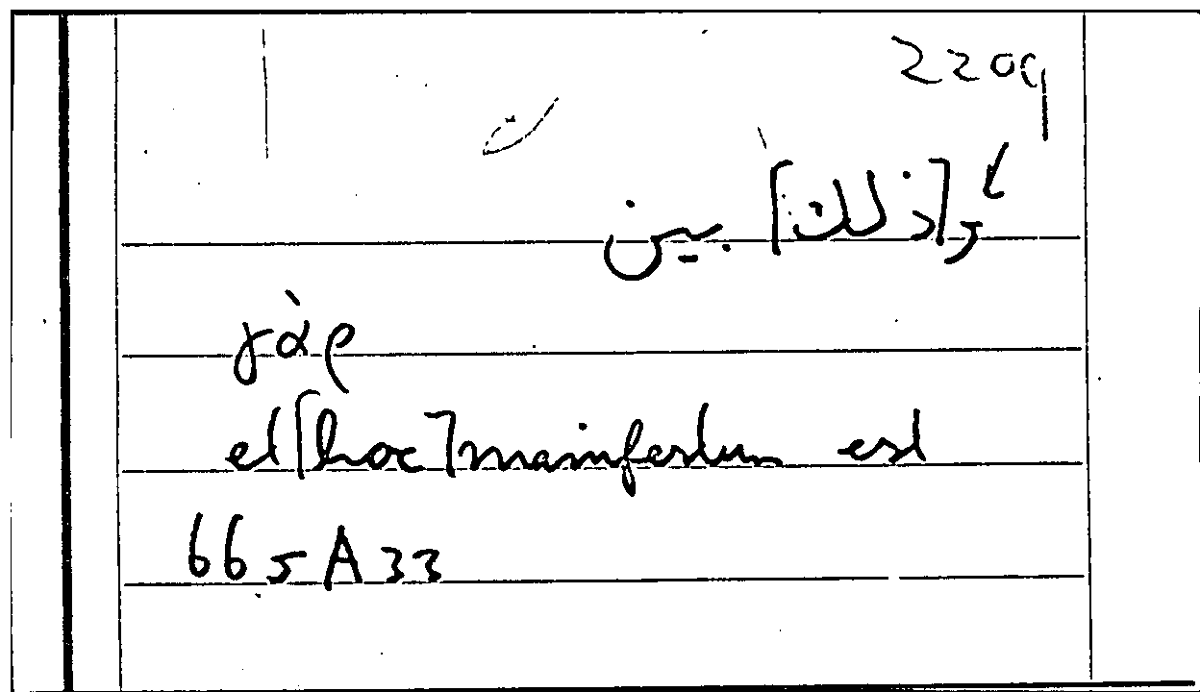 2209
و[ذلك] بين
γὰρ
et [hoc] manifestum est
665 A 33